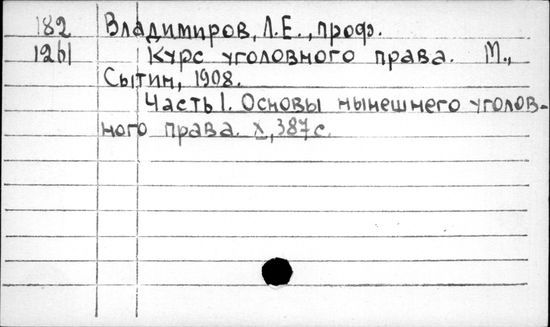 182 Владимиров, Л.Е., проф.
1261 Курс уголовного права. М.,
Сытин, 1908.
Часть 1. Основы нынешнего уголов-
ного права. X, 387 с.